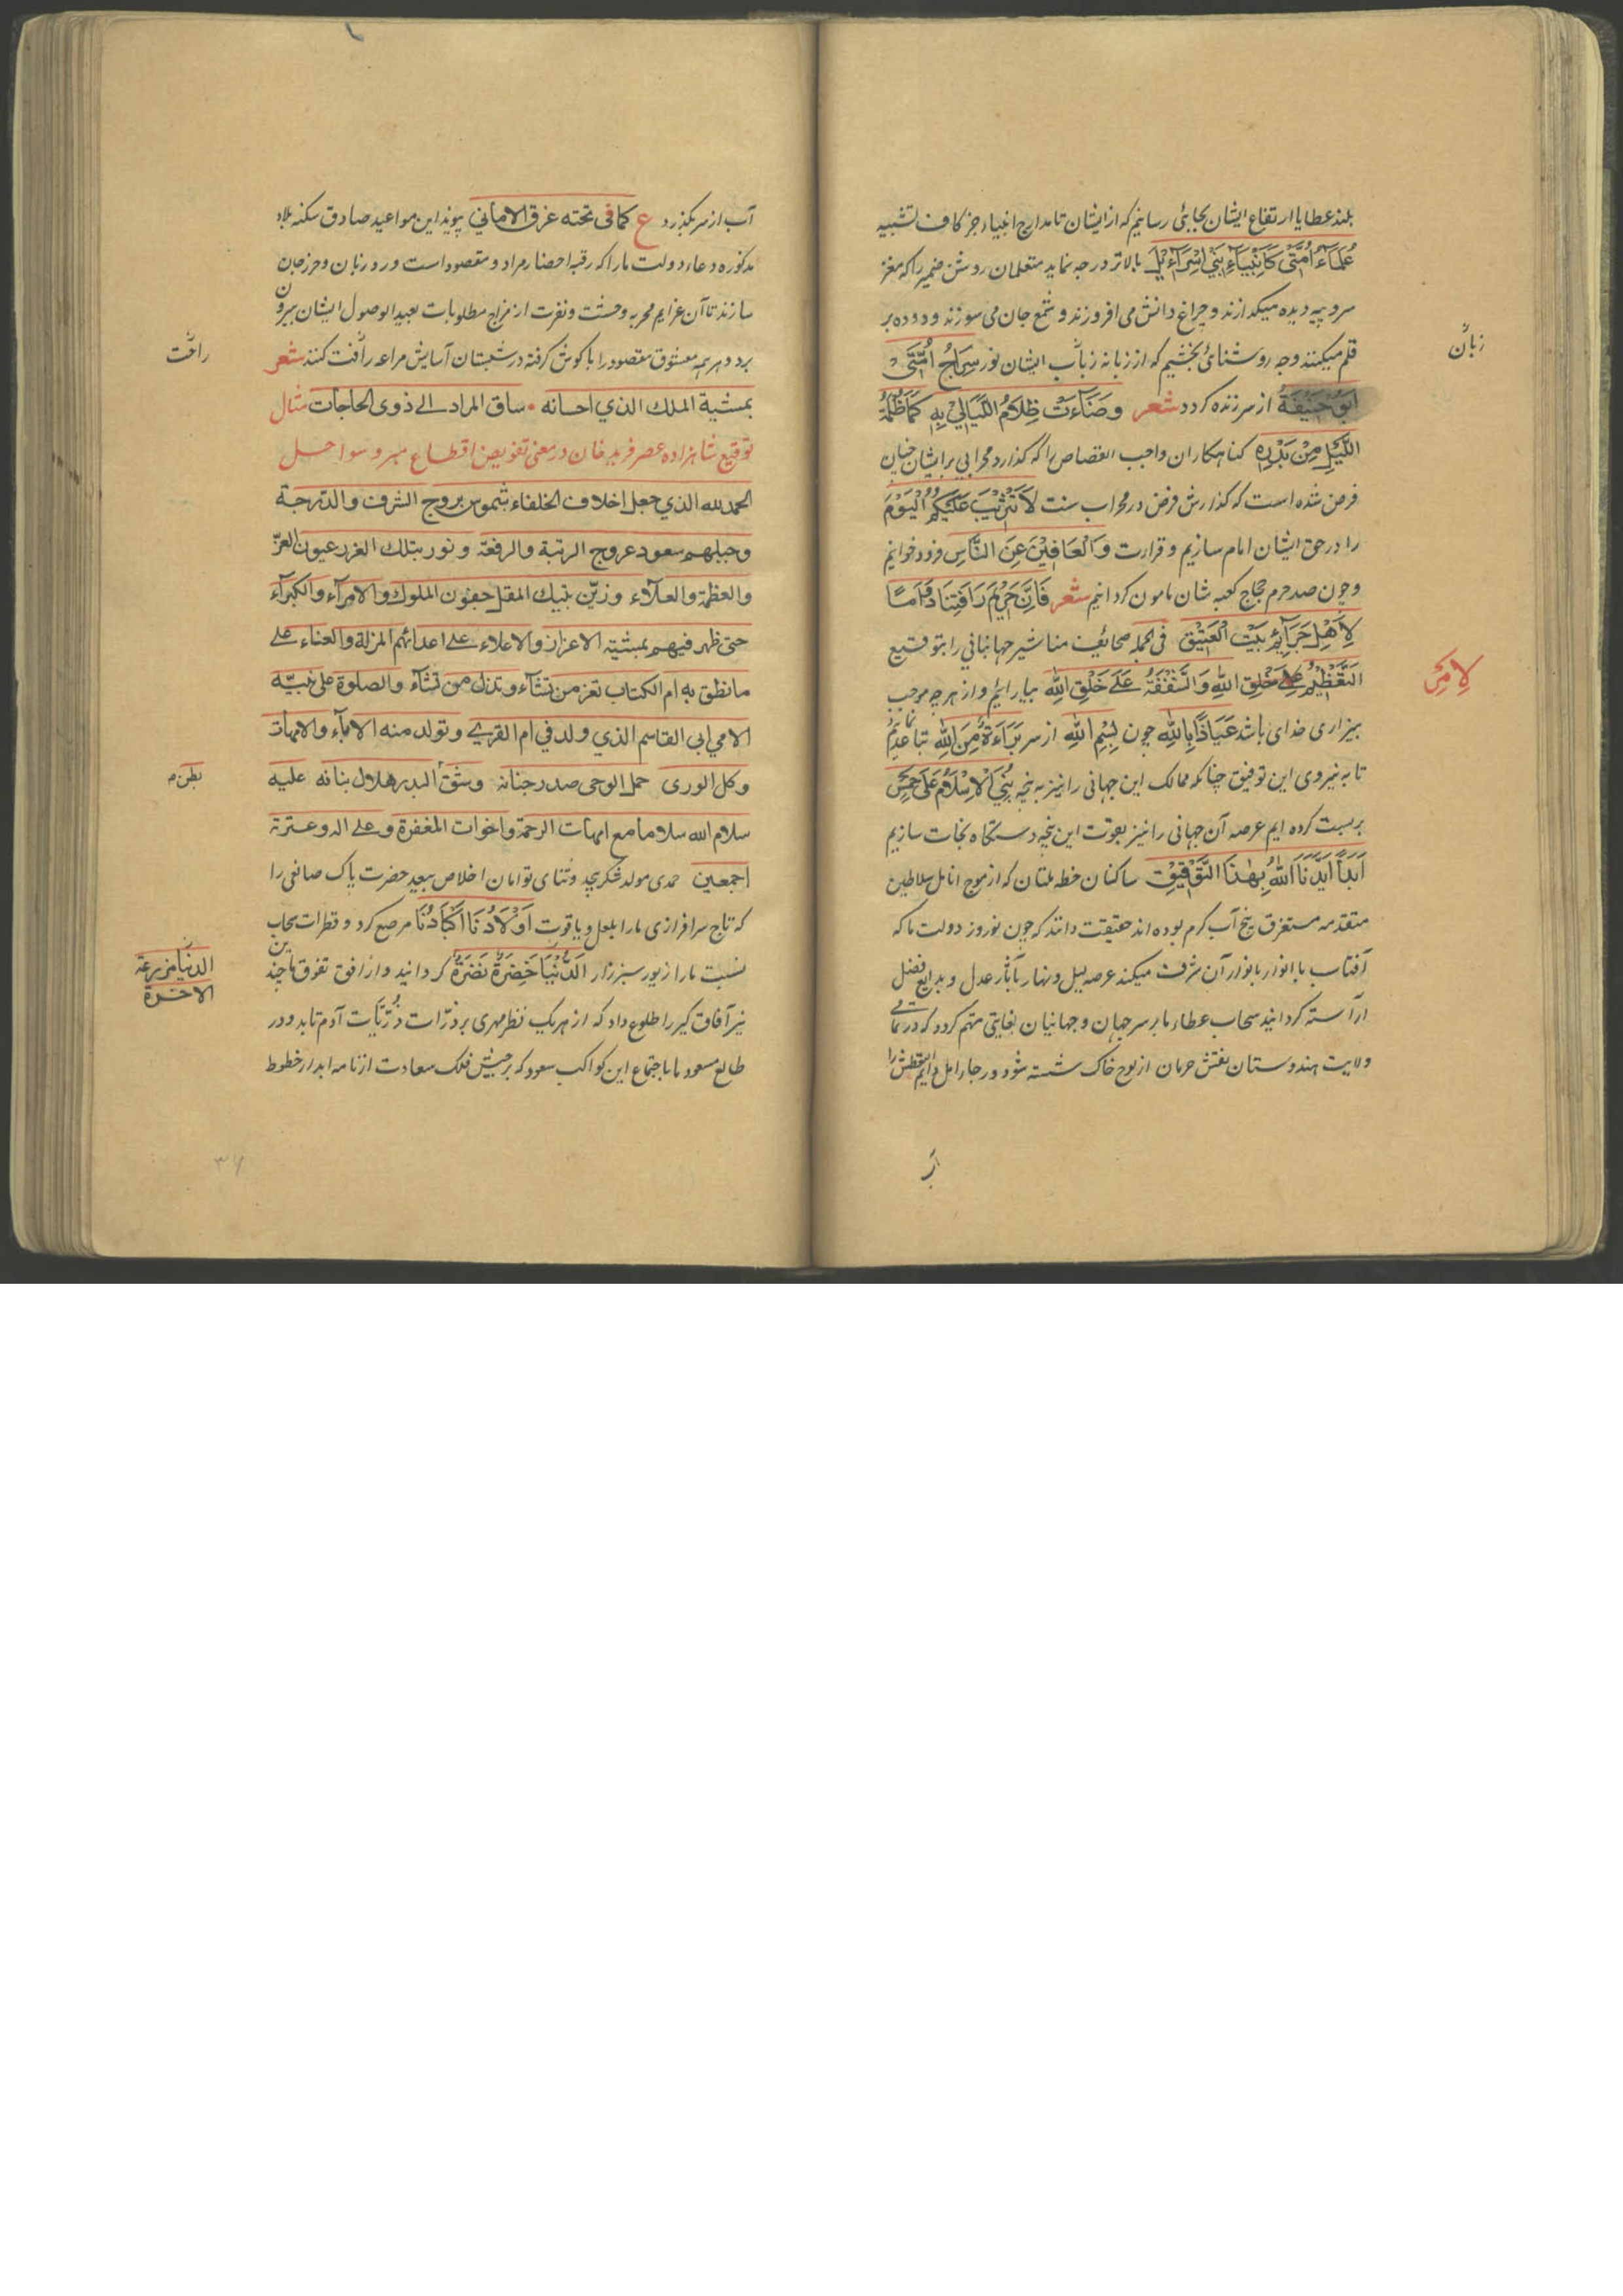 بلند عطایا ارتفاع ایشان بجایی رسانیم که از ایشان تا مدارج انبیاء جز کاف تشبیه
عُلَمَاءُ اُمَّتِی کَاَنْبِیَاءِ بَنِی اِسْرَاءِیْلَ بالاتر درجه نماید متعلمان روشن ضمیر را که مغز
سر و پیه دیده میگدازند و چراغ دانش می افروزند و شمع جان می سوزند و دوده بر
قلم میکنند وجه روشنائی بخشیم که از زبانه زبان ایشان نور سِرَاجُ اُمَّتِیْ
اَبُوْحَنِیْفَةَ از سر زنده کردد شعر وَضَاءَتْ ظِلَامُ اللَّیَالِیْ بِهِ کَمَا ظُلْمَةُ
اللَّیْلِ مِنْ بَدْرِهِ کناهکاران واجب القصاص را که گذارد محرابی بر ایشان چنان
فرض شده است که گذارش فرض در محراب سنت لَا تَثْرِیْبَ عَلَیْکُمُ الْیَوْمَ
را در حق ایشان امام سازیم و قرارت وَالْعَافِیْنَ عَنِ النَّاسِ فرود خوانیم
و چون صد حرم حجاج کعبه شان مامون کردانیم شعر فَاِنَّ حَرِیْمَ رَافَتِنَا
لِاَهْلِ جَرَائِمٍ بَیْتُ الْعَتِیْقِ فی الجمله صحائف مناشیر جهانبانی را بتوقیع
التَّعْظِیْمُ خَلْقِ اللهِ وَالشَّفَقَةُ عَلَی خَلْقِ اللهِ بیارائیم و از هرچه موجب
بیزاری خدای باشد عَیَاذًا بِاللهِ چون بِسْمِ اللهِ از سر بَرَاءَةٌ مِنَ اللهِ تباعد
تا به نیروی این توفیق چنانکه ممالک این جهانی را نیز به پنجه بُنِیَ الْاِسْلَامُ عَلَی خَمْسٍ
بربست کرده ایم عرصه آن جهانی را نیز بقوت این پنجه دستگاه نجات سازیم
اَبَدًا اَیَّدَنَا اللهُ بِهٰذَا التَّوْفِیْقِ ساکنان خطه ملتان که از موج انامل سلاطین
متقدمه مستغرق پنج آب کرم بوده اند حقیقت دانند که چون نوروز دولت ما که
آفتاب با انوار بانوار آن شرف میکند عرصه لیل و نهار بآثار عدل و بدایع فضل
آراسته کردانید سحاب عطاء ما بر سر جهان و جهانیان بغایتی کردد که در تمامی
ولایت هندوستان نقش حرمان از لوح خاک شسته شود و رجاء امل
زبان
آب از سر بگذرد ع کما فی تحته غرق الامانی پیوند این مواعید صادق سکنه بلاد
مذکوره دعاء دولت ما را که رقیه احضار مراد و مقصود است ورد زبان و حرز جان
سازند تا آن عزایم مجربه وحشت و نفرت از مزاج مطلوبات بعید الوصول ایشان بیرون
برد و هر همه معشوق مقصود را با گوش گرفته در شبستان آسایش رأفت کنند شعر
بمشیة الملک الذی احسانه ساق المراد الی ذوی الحاجات مثال
توقیع شاهزاده عصر فرید خان در معنی تفویض اقطاع سواحل
الحمد لله الذی جعل اخلاف الخلفاء شموس بروج الشرف والدرجة
وجبلهم سعود عروج الرتبة والرفعة ونور بتلک الغرر عیون العز
والعظمة والعلاء وزین بتیک المقل جفون الملوک والامراء والکبرآء
حتی ظهر فیهم بمشیة الاعزاز والاعلاء علی اعدائهم المزلة والعناء علی
ما نطق به ام الکتاب تعز من تشاء وتذل من تشاء والصلوة علی نبیه
الامی ابی القاسم الذی ولد فی ام القری وتولد منه الاباء والامهات
وکل الوری حمل الوحی صدر جنانه وشق البدر هلال بنانه علیه
سلام الله سلاما مع امهات الرحمة واخوات المغفرة وعلی اله وعترته
اجمعین حمدی مولد شکر بیحد و ثنای توامان اخلاص بیعد حضرت پاک صانعی را
که تاج سرافرازی ما را بلعل و یاقوت اَوْلَادُنَا اَکْبَادُنَا مرصع کرد و قطرات سحاب
نسبت ما را زیور سبزه زار الدُّنْیَا خَضِرَةٌ نَضِرَةٌ کردانید و از افق تفوق ما چندین
نیر آفاق گیر را طلوع داد که از هر یک نظر مهری بر ذرات ذُرِّیَات آدم تابد و در
طالع مسعود ما باجتماع این کواکب سعود که برجیش فلک سعادت از نامه ابدار خطوط
رافت
بطن م
الدنیا مزرعة
الاخرة
۳۶